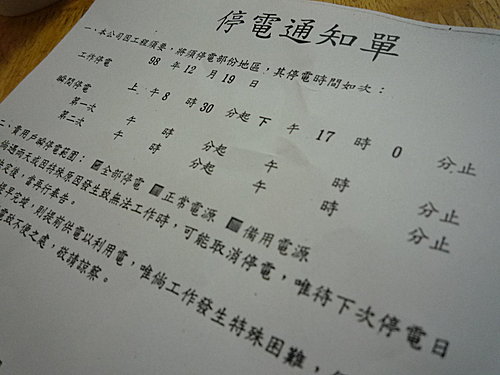 停電通知單
一、本公司因工程須要，將須停電部份地區，其停電時間如次：
工作停電 98 年 12 月 19 日
上午 8 時 30 分起 下 午 17 時 0 分止
瞬間停電
第一次 午 時 分起 午 時 分止
第二次 午 時 分起 午 時 分止
二、貴用戶瞬停電範圍：■全部停電 ■正常電源 ■備用電源
倘遇雨天或因特殊原因發生致無法工作時，可能取消停電，唯待下次停電日
決定後，當再行奉告。
提早完竣，則提前供電以利用電，唯倘工作發生特殊困難，
電致不便之處，敬請諒察。